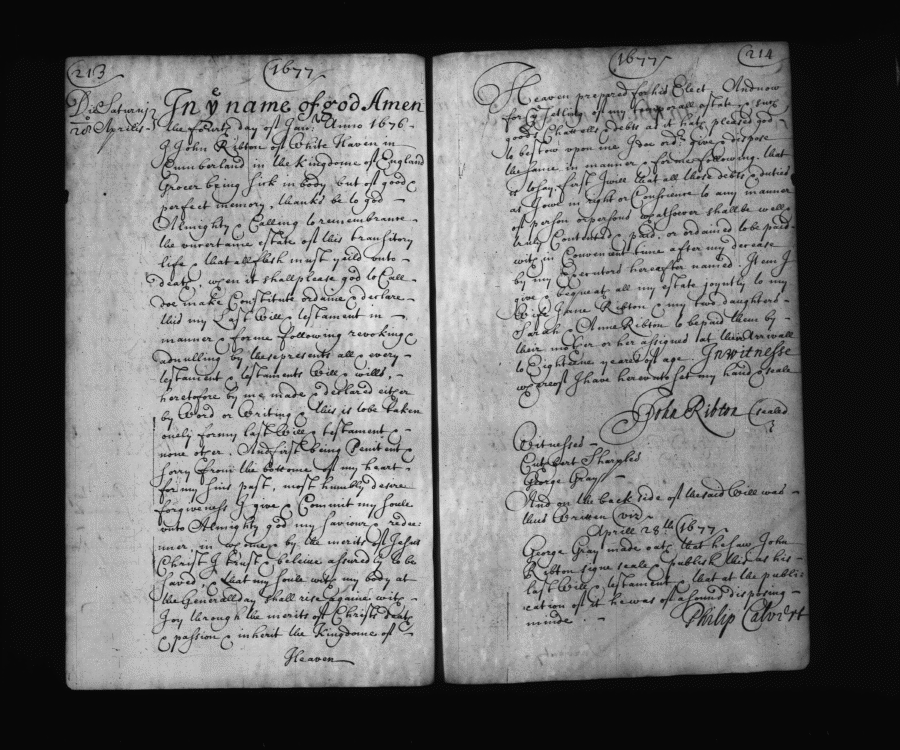 213
1677
Die Saturnj
28o Aprilis
In ye name of god Amen
the fourth day of Jan: Anno 1676
I John Ribton of White Haven in
Cumberland in the Kingdome of England
Grocer being sick in body but of good
perfect memory, thanks be to god
Almighty & Calling to remembranse
the uncertaine estate of this transitory
life & that all flesh must yeild unto
death, when it shall please god to Call
doe make Constitute ordaine & declare
this my Last Will & testament in
manner & forme following revoking &
adnulling by these presents all & every
testament & testaments Will & wills,
heretofore by me made & declared either
by Word or Writing & this is to be taken
onely for my last Will & testament &
none other. And first being Penitent &
sorry from the bottome of my heart
for my sins past, most humbly desire
forgiveness I give & Commit my soule
unto Almighty god my saviour & redee:
mer, in whome & by the merits of Jesus
Christ I trust & beleive assuredly to be
saved, & that my soule with my body at
the Generall day shall rise againe with
Joy through the merits of Christs death
& passion & inherit the Kingdome of
Heaven
1677
214
Heaven prepared for his Elect. And now
for ye setling of my temporall estate & such
goods Chattells & debts as it hath pleased god
to bestow upon me I doe order give & dispose
the same in manner & forme following, that
is to say first I will that all those debts & duties
as I owe in right or Conscience to any manner
of person or persons whatsoever shall be well &
truly Contented & paid, or ordained to be paid
with in Convenient time after my decease
by my Executors hereafter named. Item I
give & bequeat all my estate joyntly to my
Wife Jane Ribton & my two daughters
Sarah & Anne Ribton to be paid them by
their mother or her assignes at their Arivall
to Eighteene yeares of age. In witnesse
whereof I have hereunto set my hand & seale
John Ribton (sealed
Witnesses
Cuthbert Sharples
George Gray
And on the back side of the said Will was
thus Written (viz
Aprill 28th 1677
George Gray made oath that he saw John
Ribton signe seale & publish this as his
last Will & testament & that at the publi:
cation of it he was of a sound disposing
minde
Philip Calvert